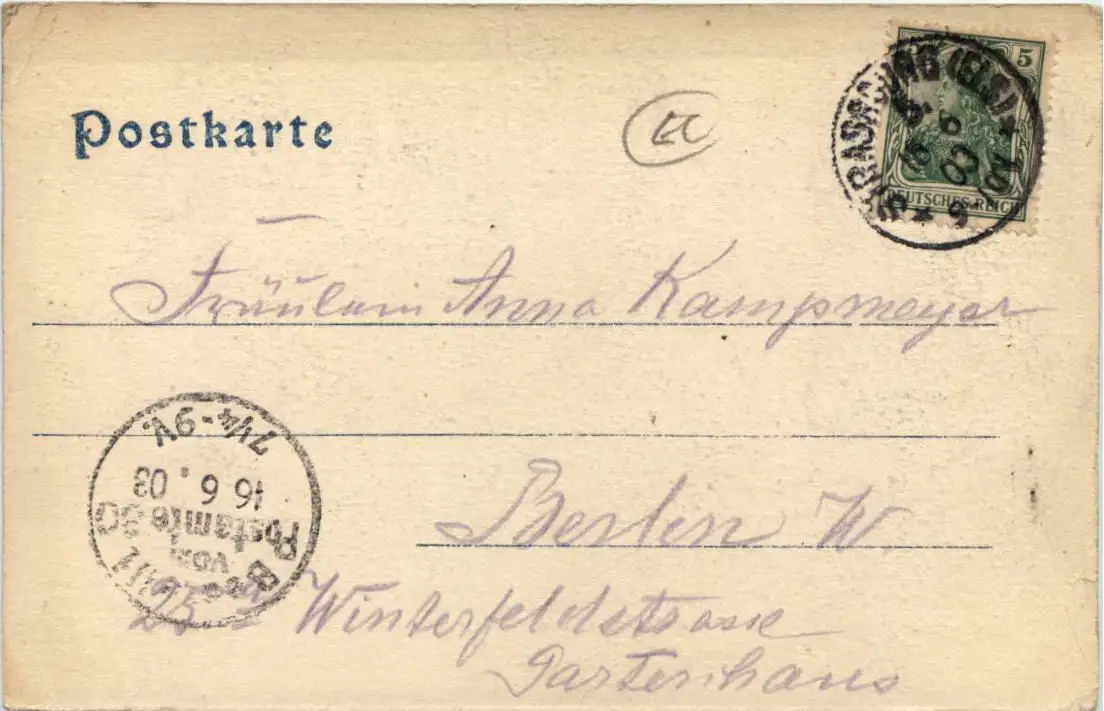 Postkarte
EC
5
STRASSBURG (ELS.)
15 6 03
DEUTSCHES REICH
Fräulein Anna Kampmeyer
Berlin W.
25 Winterfeldstrasse
Gartenhaus
Bestellt
vom
Postamte
16 6 . 03
7¼-9V.